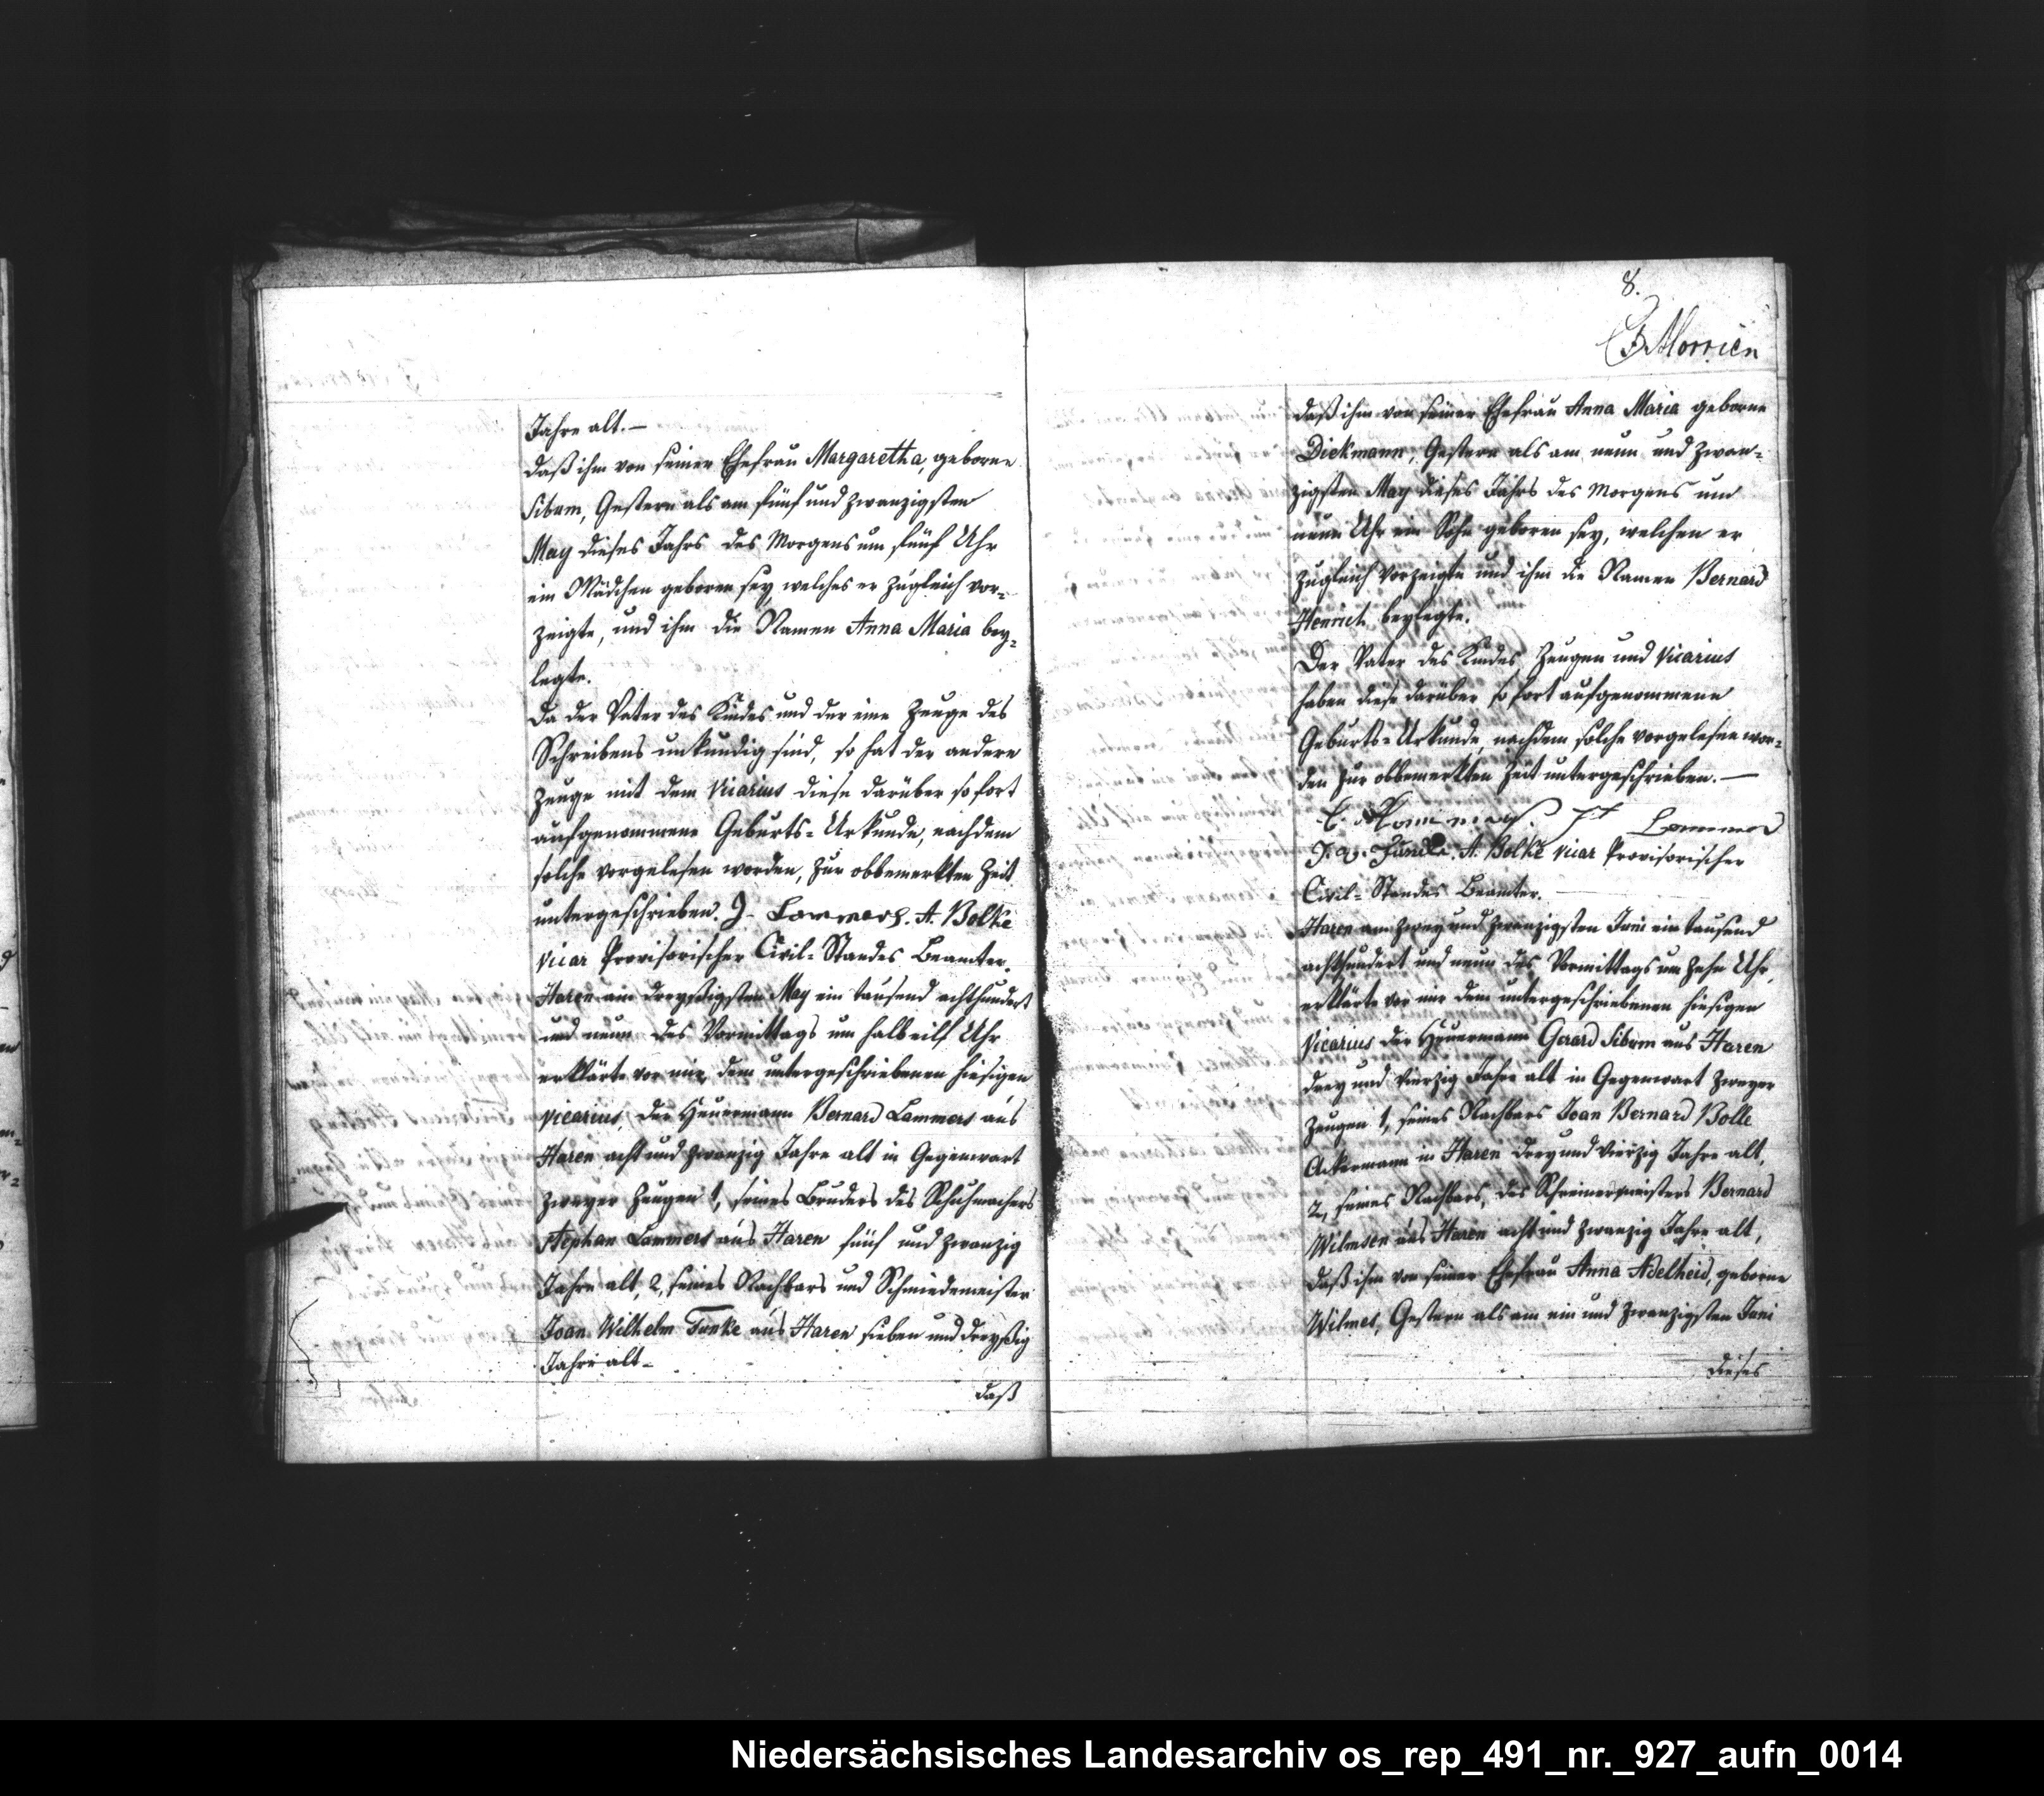 Jahre alt. —
daß ihm von seiner Ehefrau Margaretha, geborne
Sibum, Gestern als am fünf und zwanzigsten
May dieses Jahrs des Morgens um fünf Uhr
ein Mädchen geboren sey, welches er zugleich vor-
zeigte, und ihm die Namen Anna Maria bey-
legte.
Da der Vater des Kindes und der eine Zeuge des
Schreibens unkundig sind, so hat der andere
Zeuge mit dem Vicarius diese darüber sofort
aufgenommene Geburts-Urkunde, nachdem
solche vorgelesen worden, zur obbemerkten Zeit
untergeschrieben. J. Lammers. A. Bolke
Vicar Provisorischer Civil-Standes Beamter.
Haren am dreyßigsten May ein tausend achthundert
und neun des Vormittags um halb eilf Uhr
erklärte vor mir, dem untergeschriebenen hiesigen
Vicarius, der Heuermann Bernard Lammers aus
Haren acht und zwanzig Jahre alt in Gegenwart
zweyer Zeugen 1, seines Bruders des Schuhmachers
Stephan Lammers aus Haren fünf und zwanzig
Jahre alt, 2, seines Nachbars und Schmiedemeister
Joan Wilhelm Funke aus Haren sieben und dreyßig
Jahre alt -
daß
8.
Morrien
daß ihm von seiner Ehefrau Anna Maria geborne
Dickmann, Gestern als am neun und zwan-
zigsten May dieses Jahrs des Morgens um
neun Uhr ein Sohn geboren sey, welchen er
zugleich vorzeigte und ihm die Namen Bernard
Henrich beylegte.
Der Vater des Kindes, Zeugen und Vicarius
haben diese darüber sofort aufgenommene
Geburts-Urkunde, nachdem solche vorgelesen wor-
den zur obbemerkten Zeit untergeschrieben. —
Lammers
J. W. Funke. A. Bolke Vicar Provisorischer
Civil-Standes Beamter.
Haren am zwey und zwanzigsten Juni ein tausend
achthundert und neun des Vormittags um zehn Uhr,
erklärte vor mir dem untergeschriebenen hiesigen
Vicarius der Heuermann Gerard Sibum aus Haren
drey und vierzig Jahre alt in Gegenwart zweyer
Zeugen 1, seines Nachbars Joan Bernard Bolle
Ackermann in Haren drey und vierzig Jahre alt,
2, seines Nachbars, des Schreinermeisters Bernard
Wilmsen aus Haren acht und zwanzig Jahre alt,
daß ihm von seiner Ehefrau Anna Adelheid, geborne
Wilmes, Gestern als am ein und zwanzigsten Juni
dieses
Niedersächsisches Landesarchiv os_rep_491_nr._927_aufn_0014